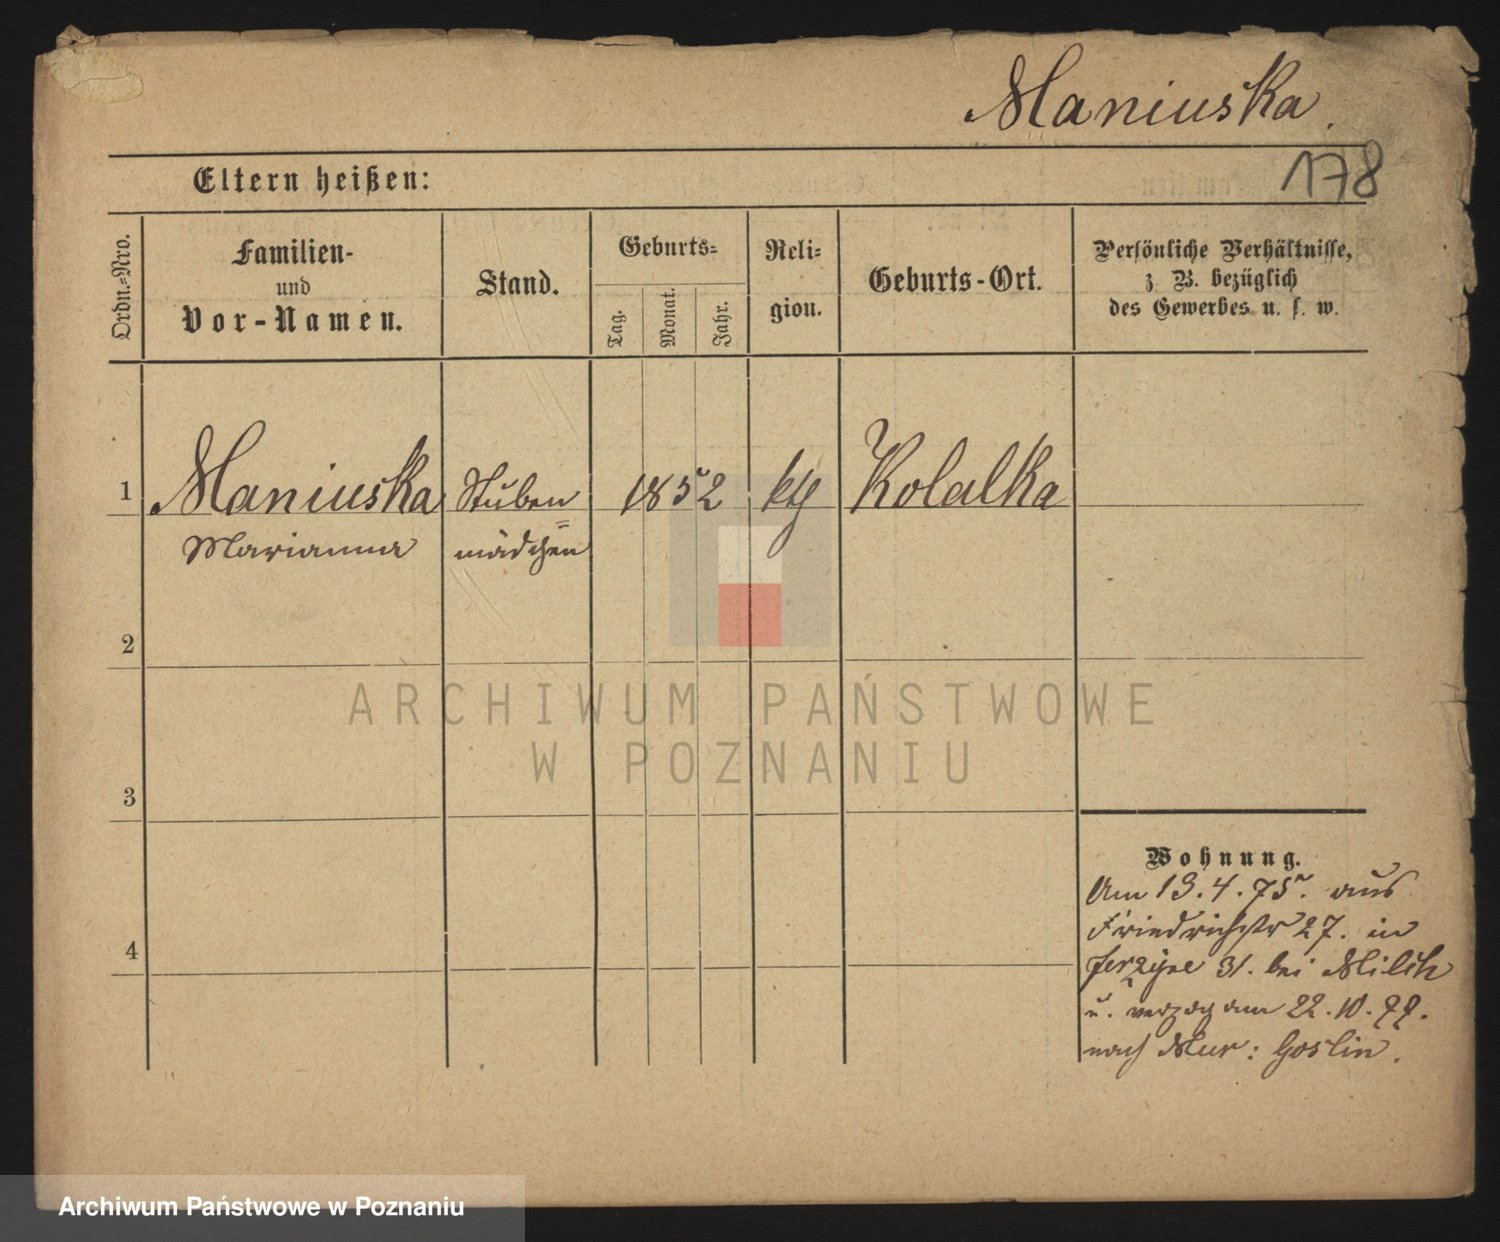 Maniuska.
178
Eltern heißen:
Ordn.-Nro.
Familien-
und
Vor-Namen.
Stand.
Geburts-
Tag.
Monat.
Jahr.
Reli-
gion.
Geburts-Ort.
Persönliche Verhältnisse,
z. B. bezüglich
des Gewerbes u. s. w.
1 Maniuska Stuben 1852 kth Kolatka
Marianna mädchen
2
3
4
Wohnung.
Am 13.4.75. aus
Friedrichstr 27. in
31. bei Milch
u. verzog am 22.10.77.
nach Mur: Goslin.
ARCHIWUM PAŃSTWOWE
W POZNANIU
Archiwum Państwowe w Poznaniu